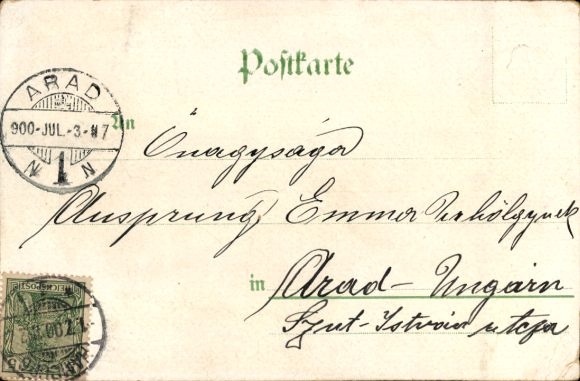 Postkarte
ARAD
900-JUL.-3-N7
N 1 N
An
Őnagysága
Ausprung Emma Urhölgynek
in Arad - Ungarn
Szent-István utcza
REICHSPOST